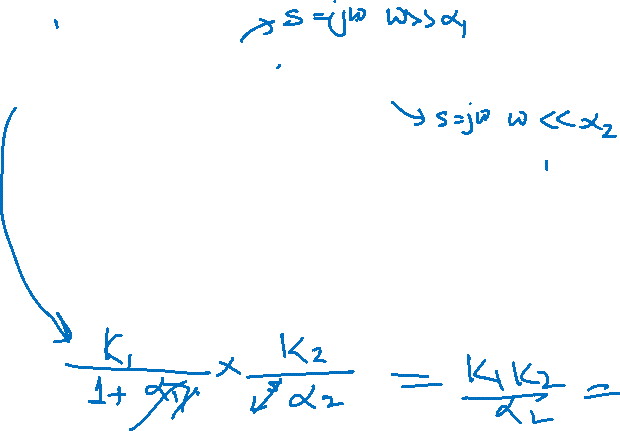 s=jω ω>>α₁
s=jω ω<<α₂
K₁ / (1+ α₁/) × K₂ / α₂ = K₁K₂ / α₂ =